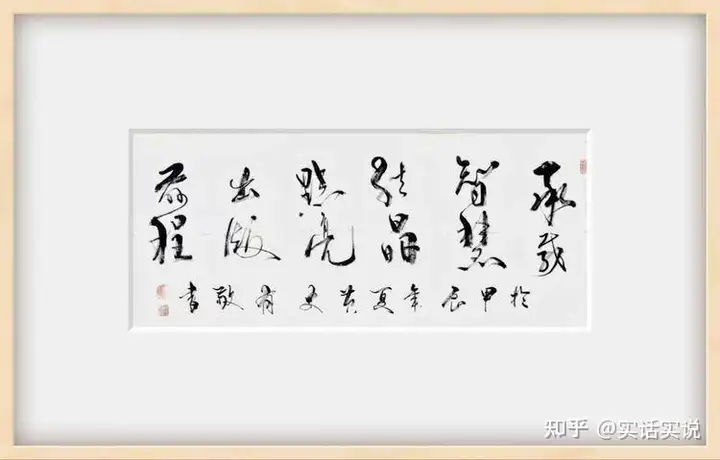 承载
智慧
结晶
點亮
出版
前程
於甲辰年夏黄史有敬书
知乎 @实话实说